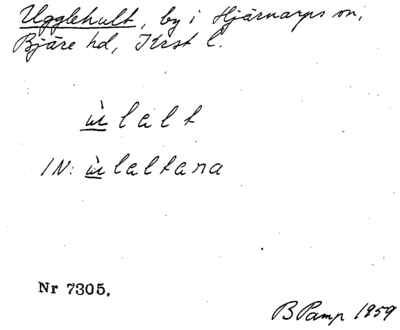 Ugglehult, by i Hjärnarps sn,
Bjäre hd, Krst l.
ùlalt
IN: ùlaltana
Nr 7305.
B Pamp 1959